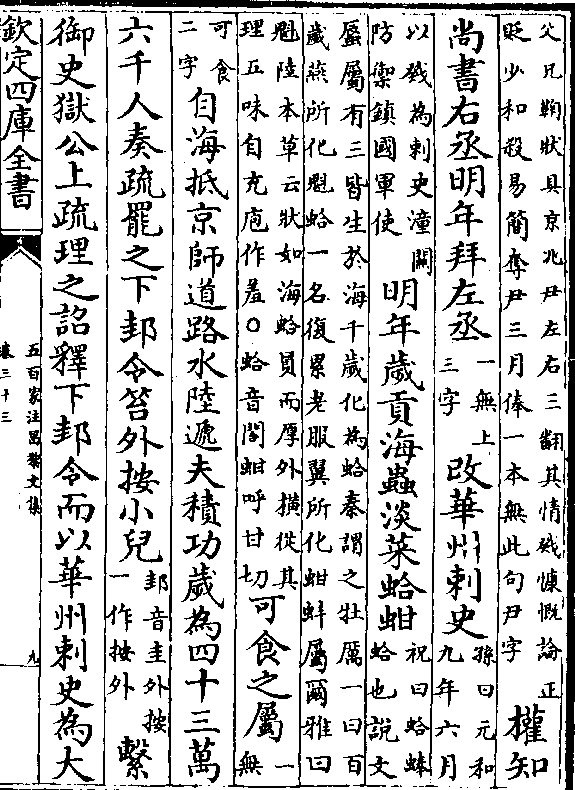 父兄鞫狀具京兆尹左右三翻其情㦯慷慨論正
貶少和殺易簡奪尹三月俸一本無此句尹字
權知
尚書右丞明年拜左丞
一無上
三字
改華州刺史
孫曰元和
九年六月
以㦯為刺史潼關
防禦鎮國軍使
明年歲貢海蟲淡菜蛤蚶
祝曰蛤蜯
蛤也説文
蜃屬有三皆生於海千歲化為蛤秦謂之牡厲一曰百
歲燕所化魁蛤一名復累老服翼所化蚶蚌屬爾雅曰
魁陸本草云狀如海蛤員而厚外横從其
理五味自充庖作羞○蛤音閤蚶呼甘切
可食之屬
一
無
可食
二字
自海抵京師道路水陸遞夫積功歲為四十三萬
六千人奏疏罷之下邽令笞外按小兒
邽音圭外按
一作按外
繫
御史獄公上疏理之詔釋下邽令而以華州刺史為大
欽定四庫全書
五百家注昌黎文集
卷三十三
九